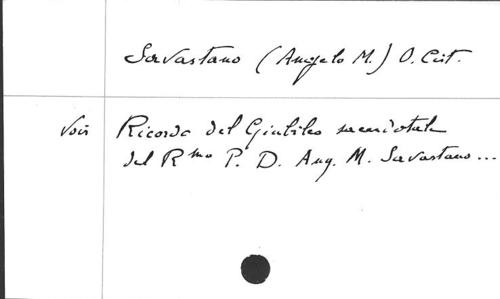 Savastano (Angelo M.) O. Cist.
voir Ricordo del Giubileo sacerdotale
del Rmo P. D. Ang. M. Savastano ...